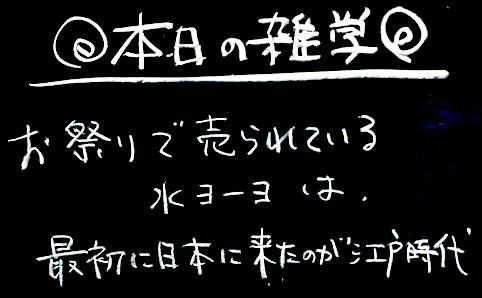 本日の雑学
お祭りで売られている
水ヨーヨは、
最初に日本に来たのが江戸時代